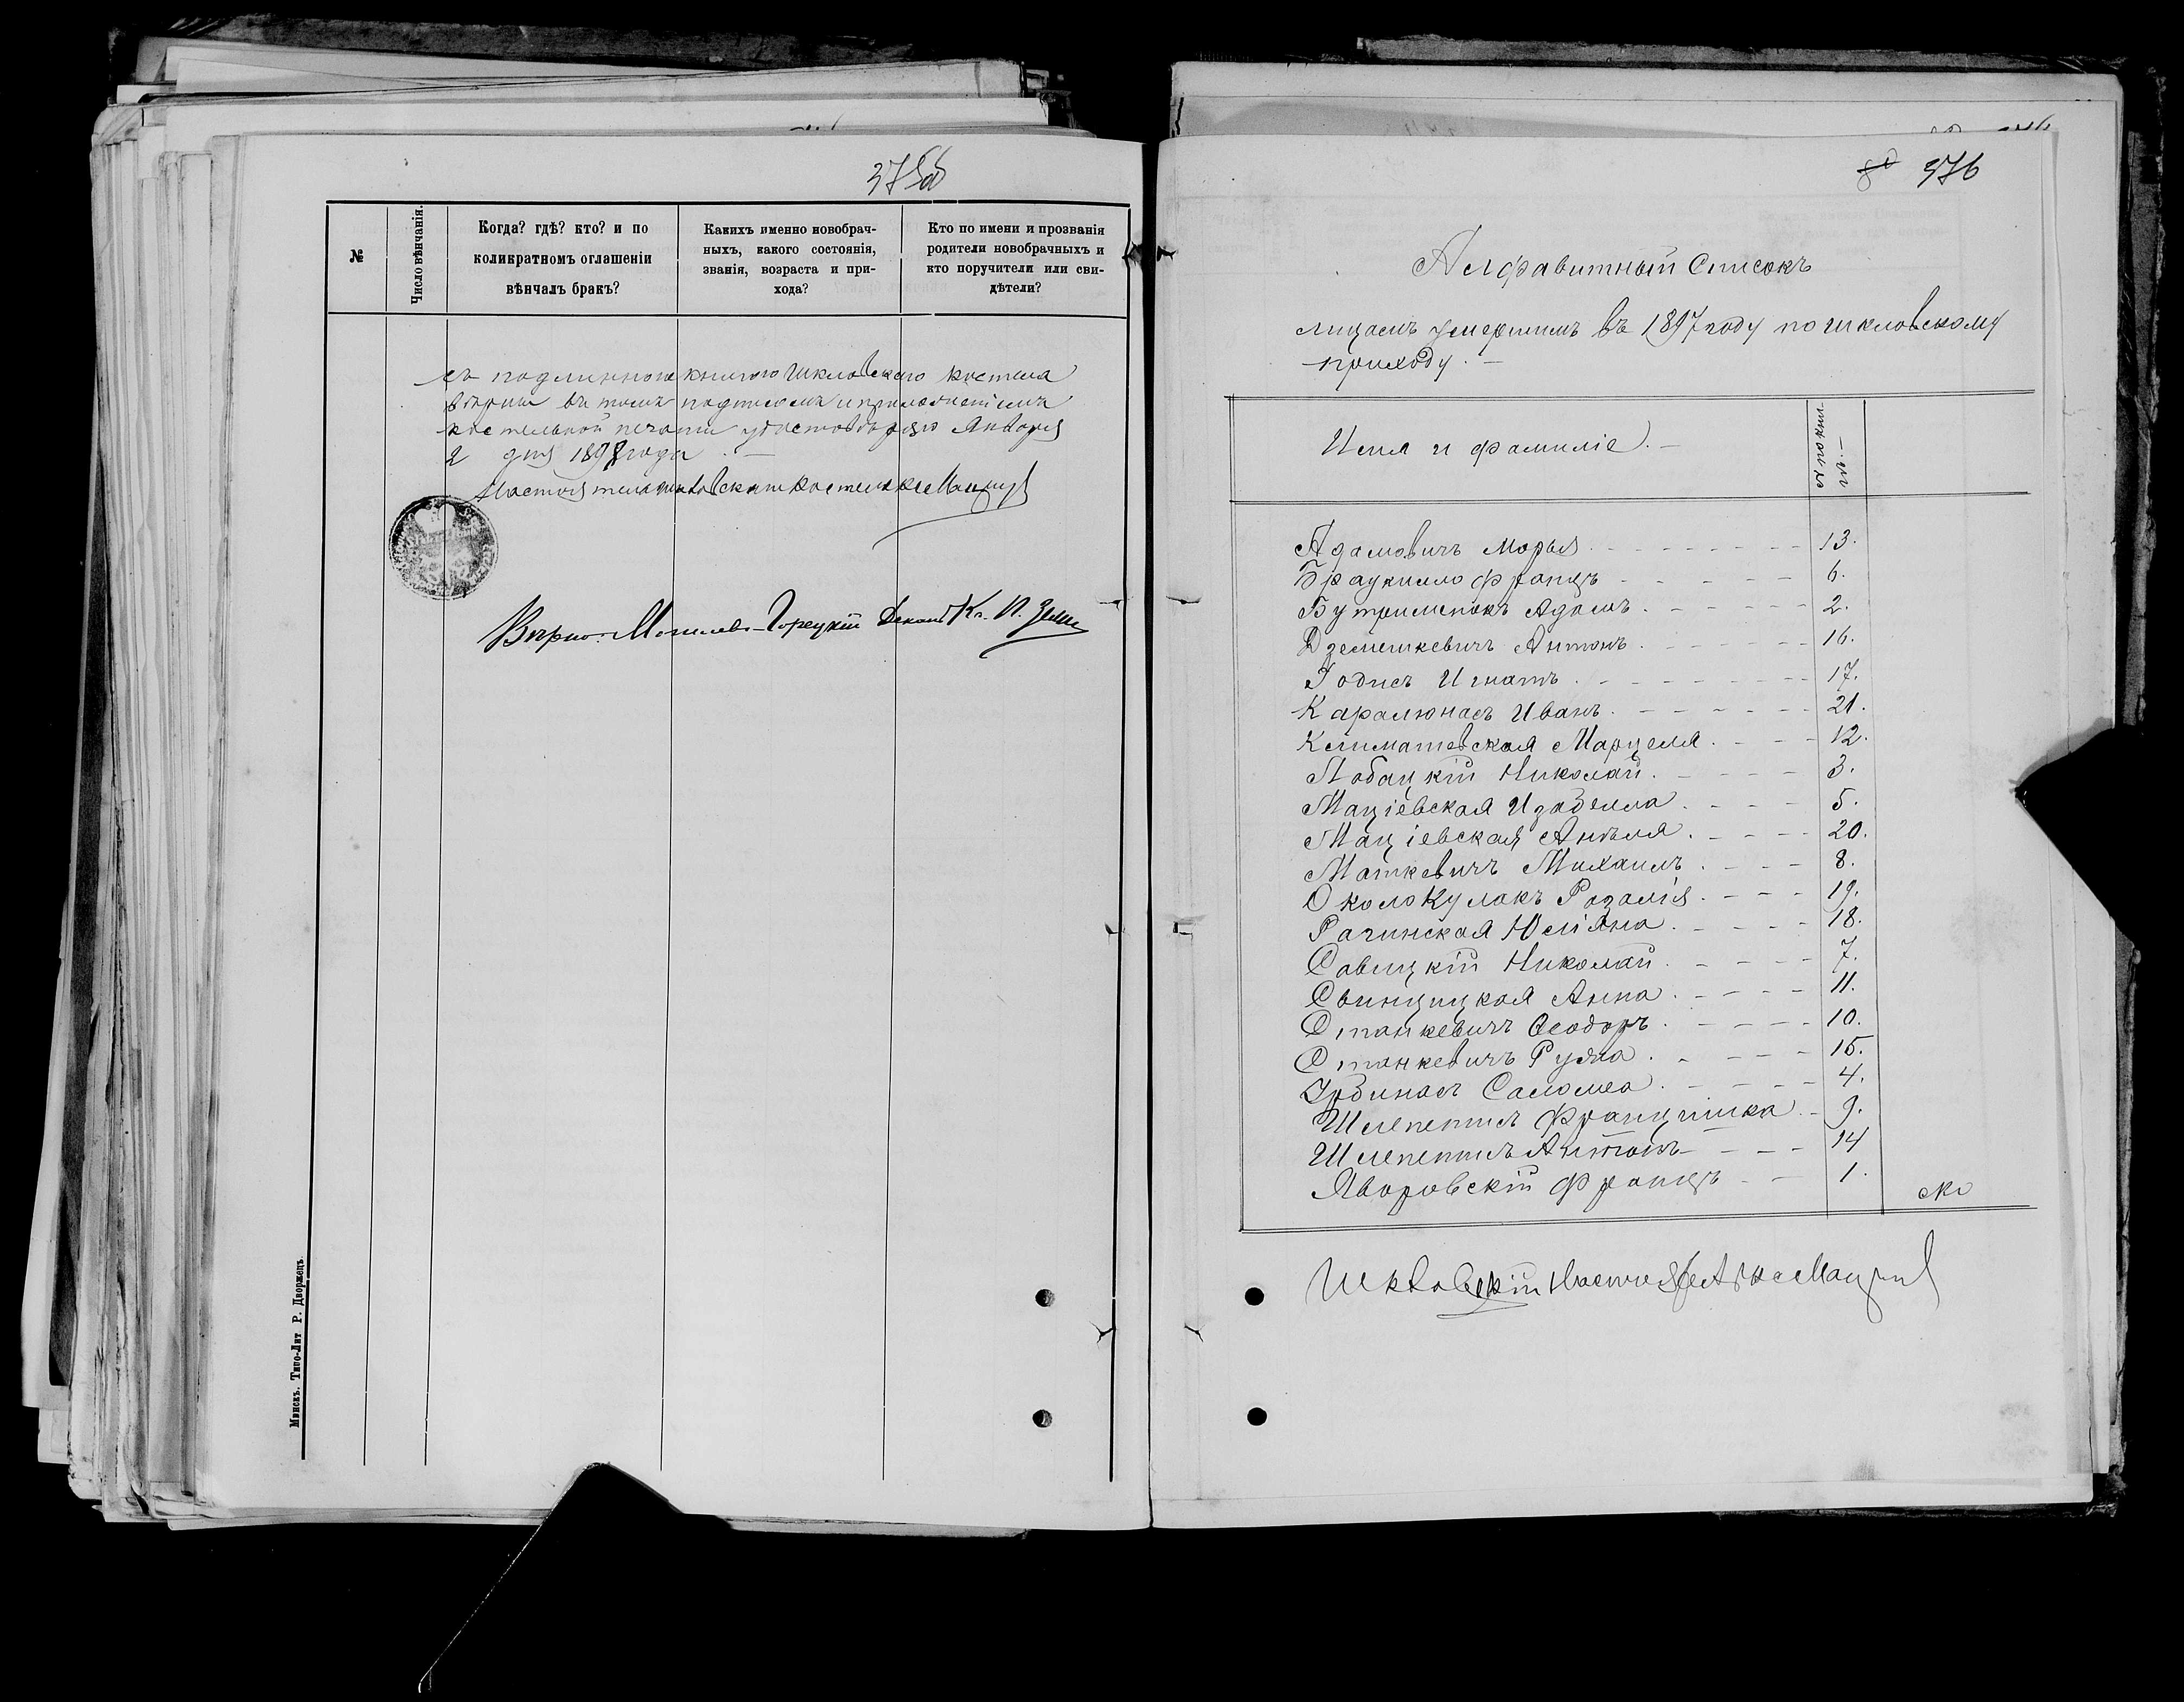 375об
№
Число вѣнчанія.
Когда? гдѣ? кто? и по
коликратномъ оглашеніи
вѣнчалъ бракъ?
Какихъ именно новобрач-
ныхъ, какого состоянія,
званія, возраста и при-
хода?
Кто по имени и прозванія
родители новобрачныхъ и
кто поручители или сви-
дѣтели?
съ подлинною книгою Шкловскаго костела
вѣрна въ томъ подписомъ и приложеніемъ
костельной печати удостовѣряю Января
2 дня 1898 года
Настоятель Шкловскаго Костела Кс Мацул
Вѣрно: Могилев-Горецкій Деканъ Кс. И.
Минскъ. Типо-Лит Р. Дворжецъ
80 376
Алфавитный Списокъ
лицамъ умершимъ въ 1897 году по шкловскому
приходу. —
Имя и фамиліе. —
№ по книг-
ѣ. —
Адамовичъ Марья 13.
Браукилло Францъ 6.
Бутрименокъ Адамъ 2.
Дземешкевичъ Антонъ 16.
Іодисъ Игнатъ 17.
Каралюнасъ Иванъ 21.
Климашевская Марцеля 12.
Лобацкій Николай 3.
Маціевская Изабелла 5.
Маціевская Анѣля 20.
Маткевичъ Михаилъ 8.
Околокулакъ Розалія 19.
Рачинская Юліяна 18.
Савицкій Николай 7.
Свинцицкая Анна 11.
Станкевичъ Ѳеодоръ 10.
Станкевичъ Руфна 15.
Урбинасъ Саломеа 4.
Шлепетисъ Францишка 9.
Шлепетисъ Антонъ 14
Яворовскій Францъ 1.
Шкловскій Настоятель Кс Мацул